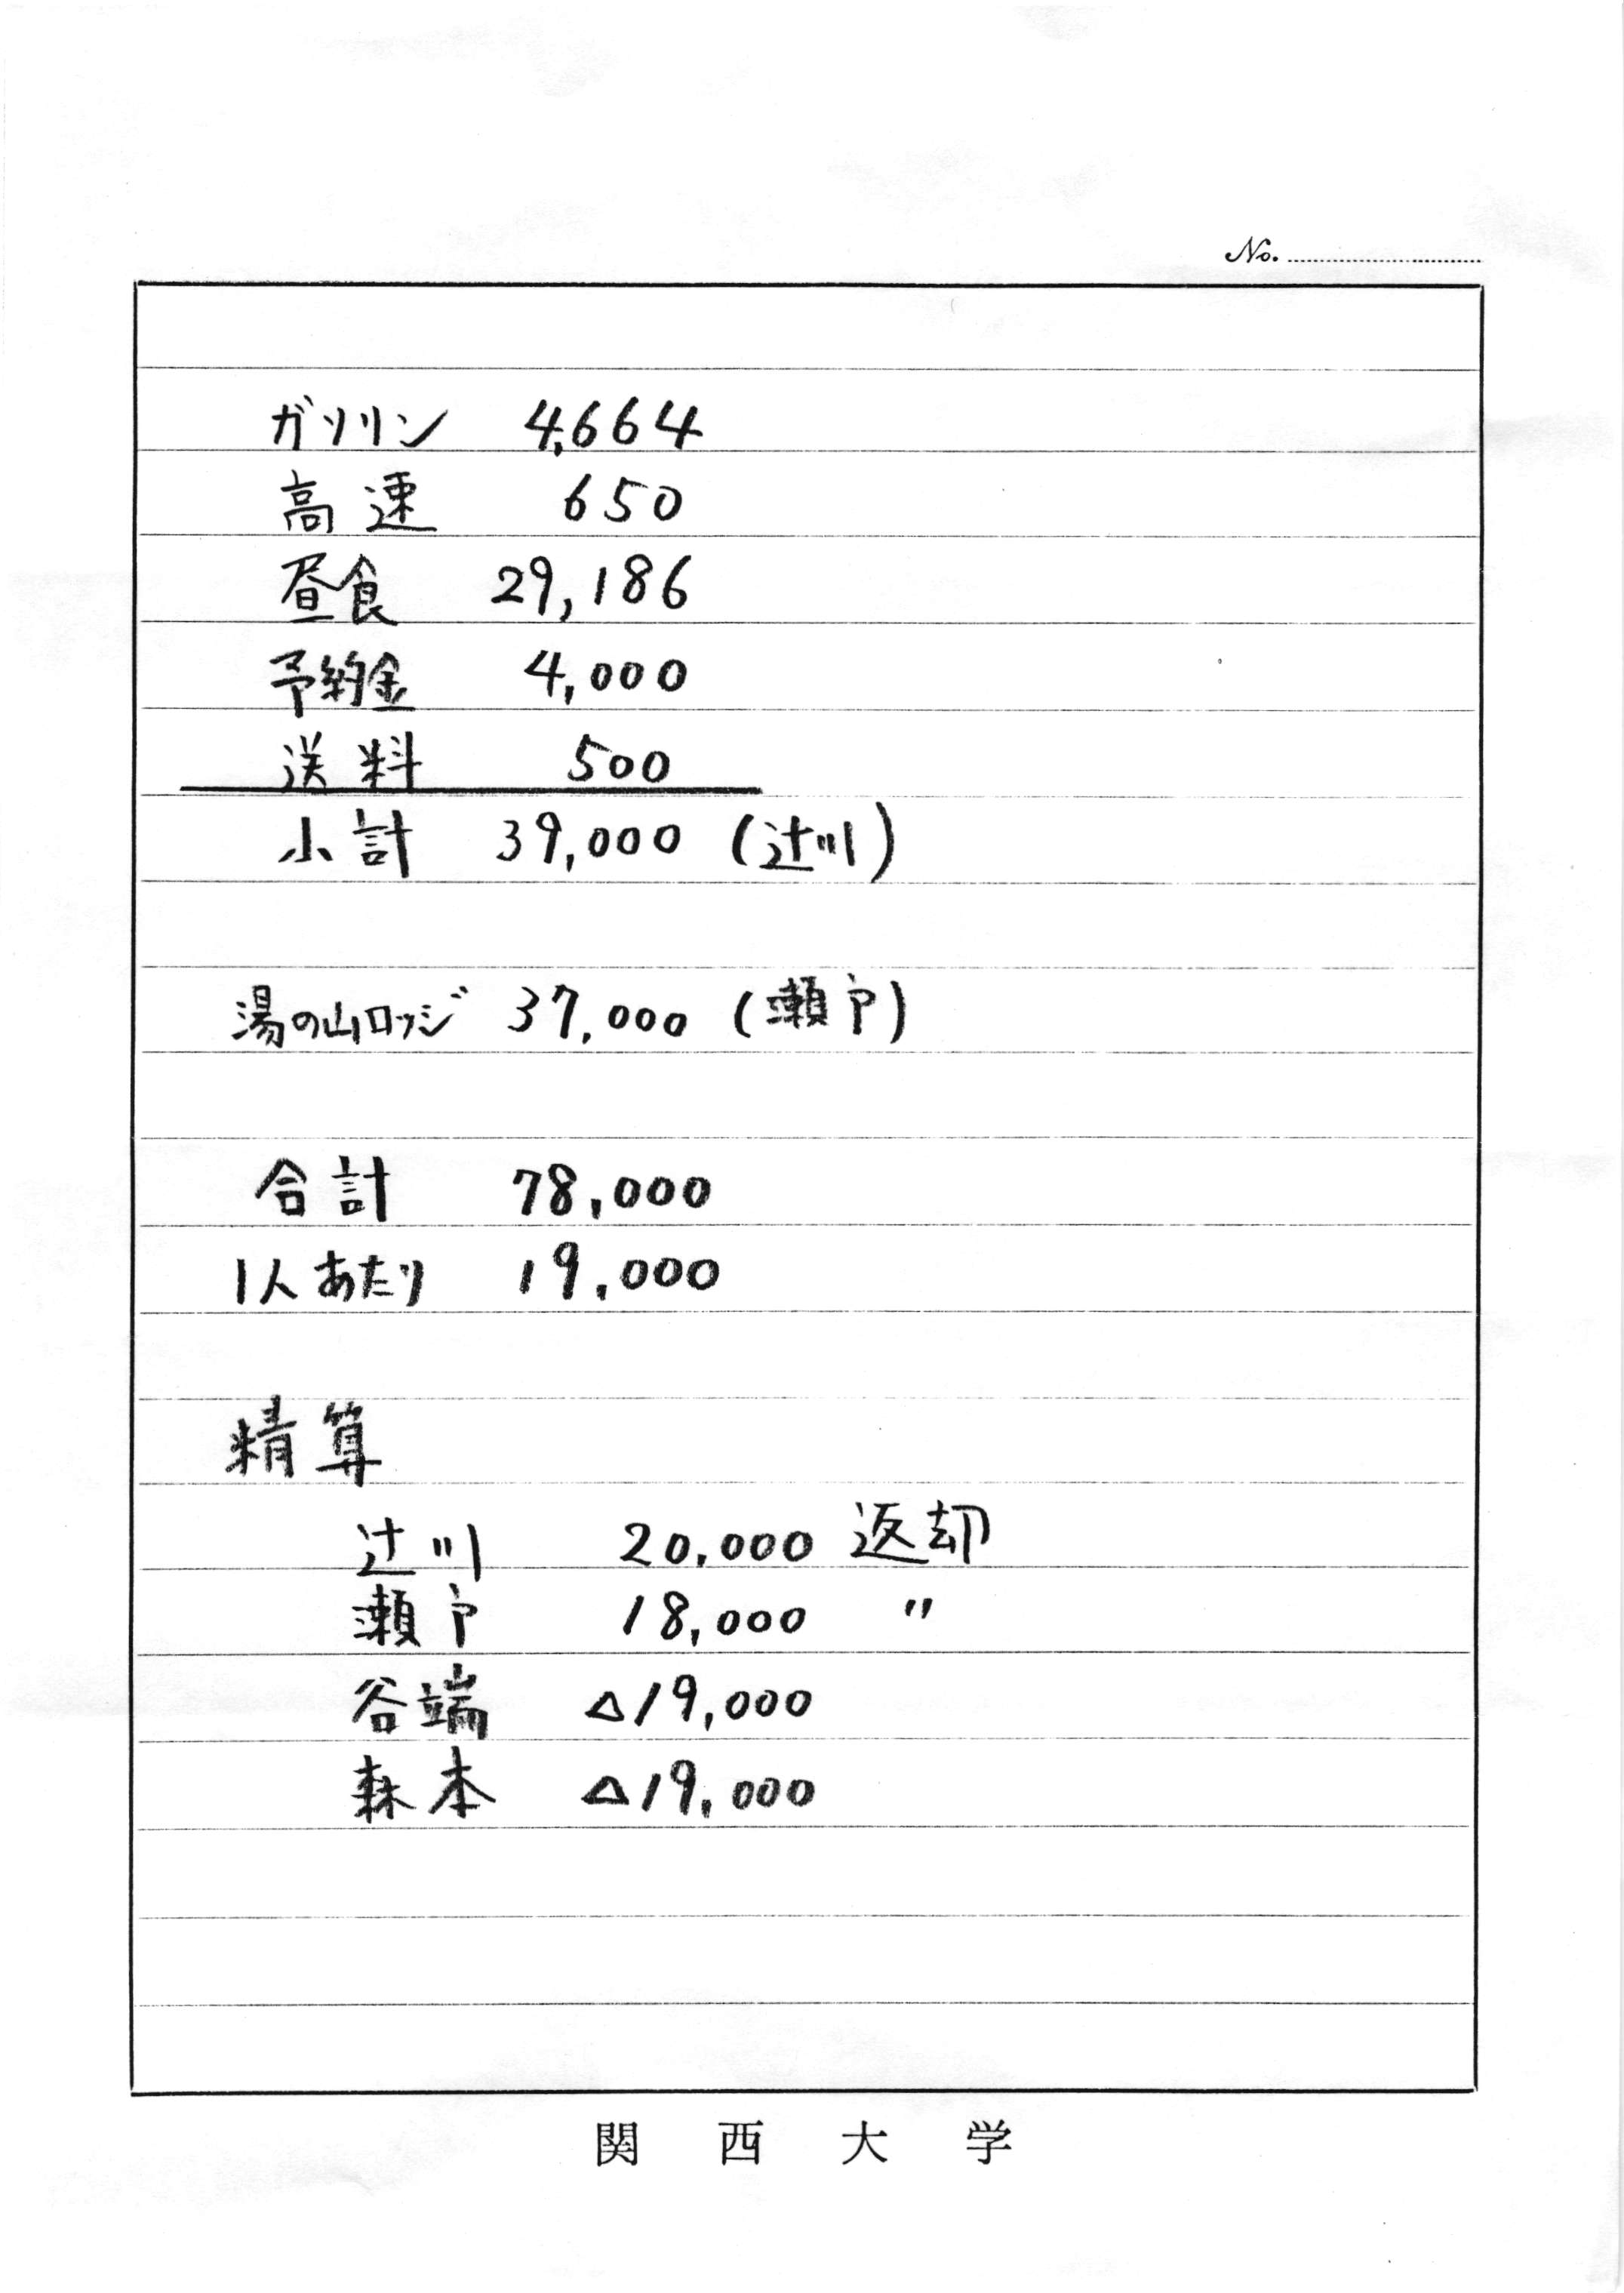 No.
ガソリン 4,664
高速 650
昼食 29,186
予約金 4,000
送料 500
小計 39,000 (辻川)
湯の山ロッジ 37,000 (瀬戸)
合計 78,000
1人あたり 19,000
精算
辻川 20,000 返却
瀬戸 18,000 〃
谷端 △19,000
森本 △19,000
関西大学